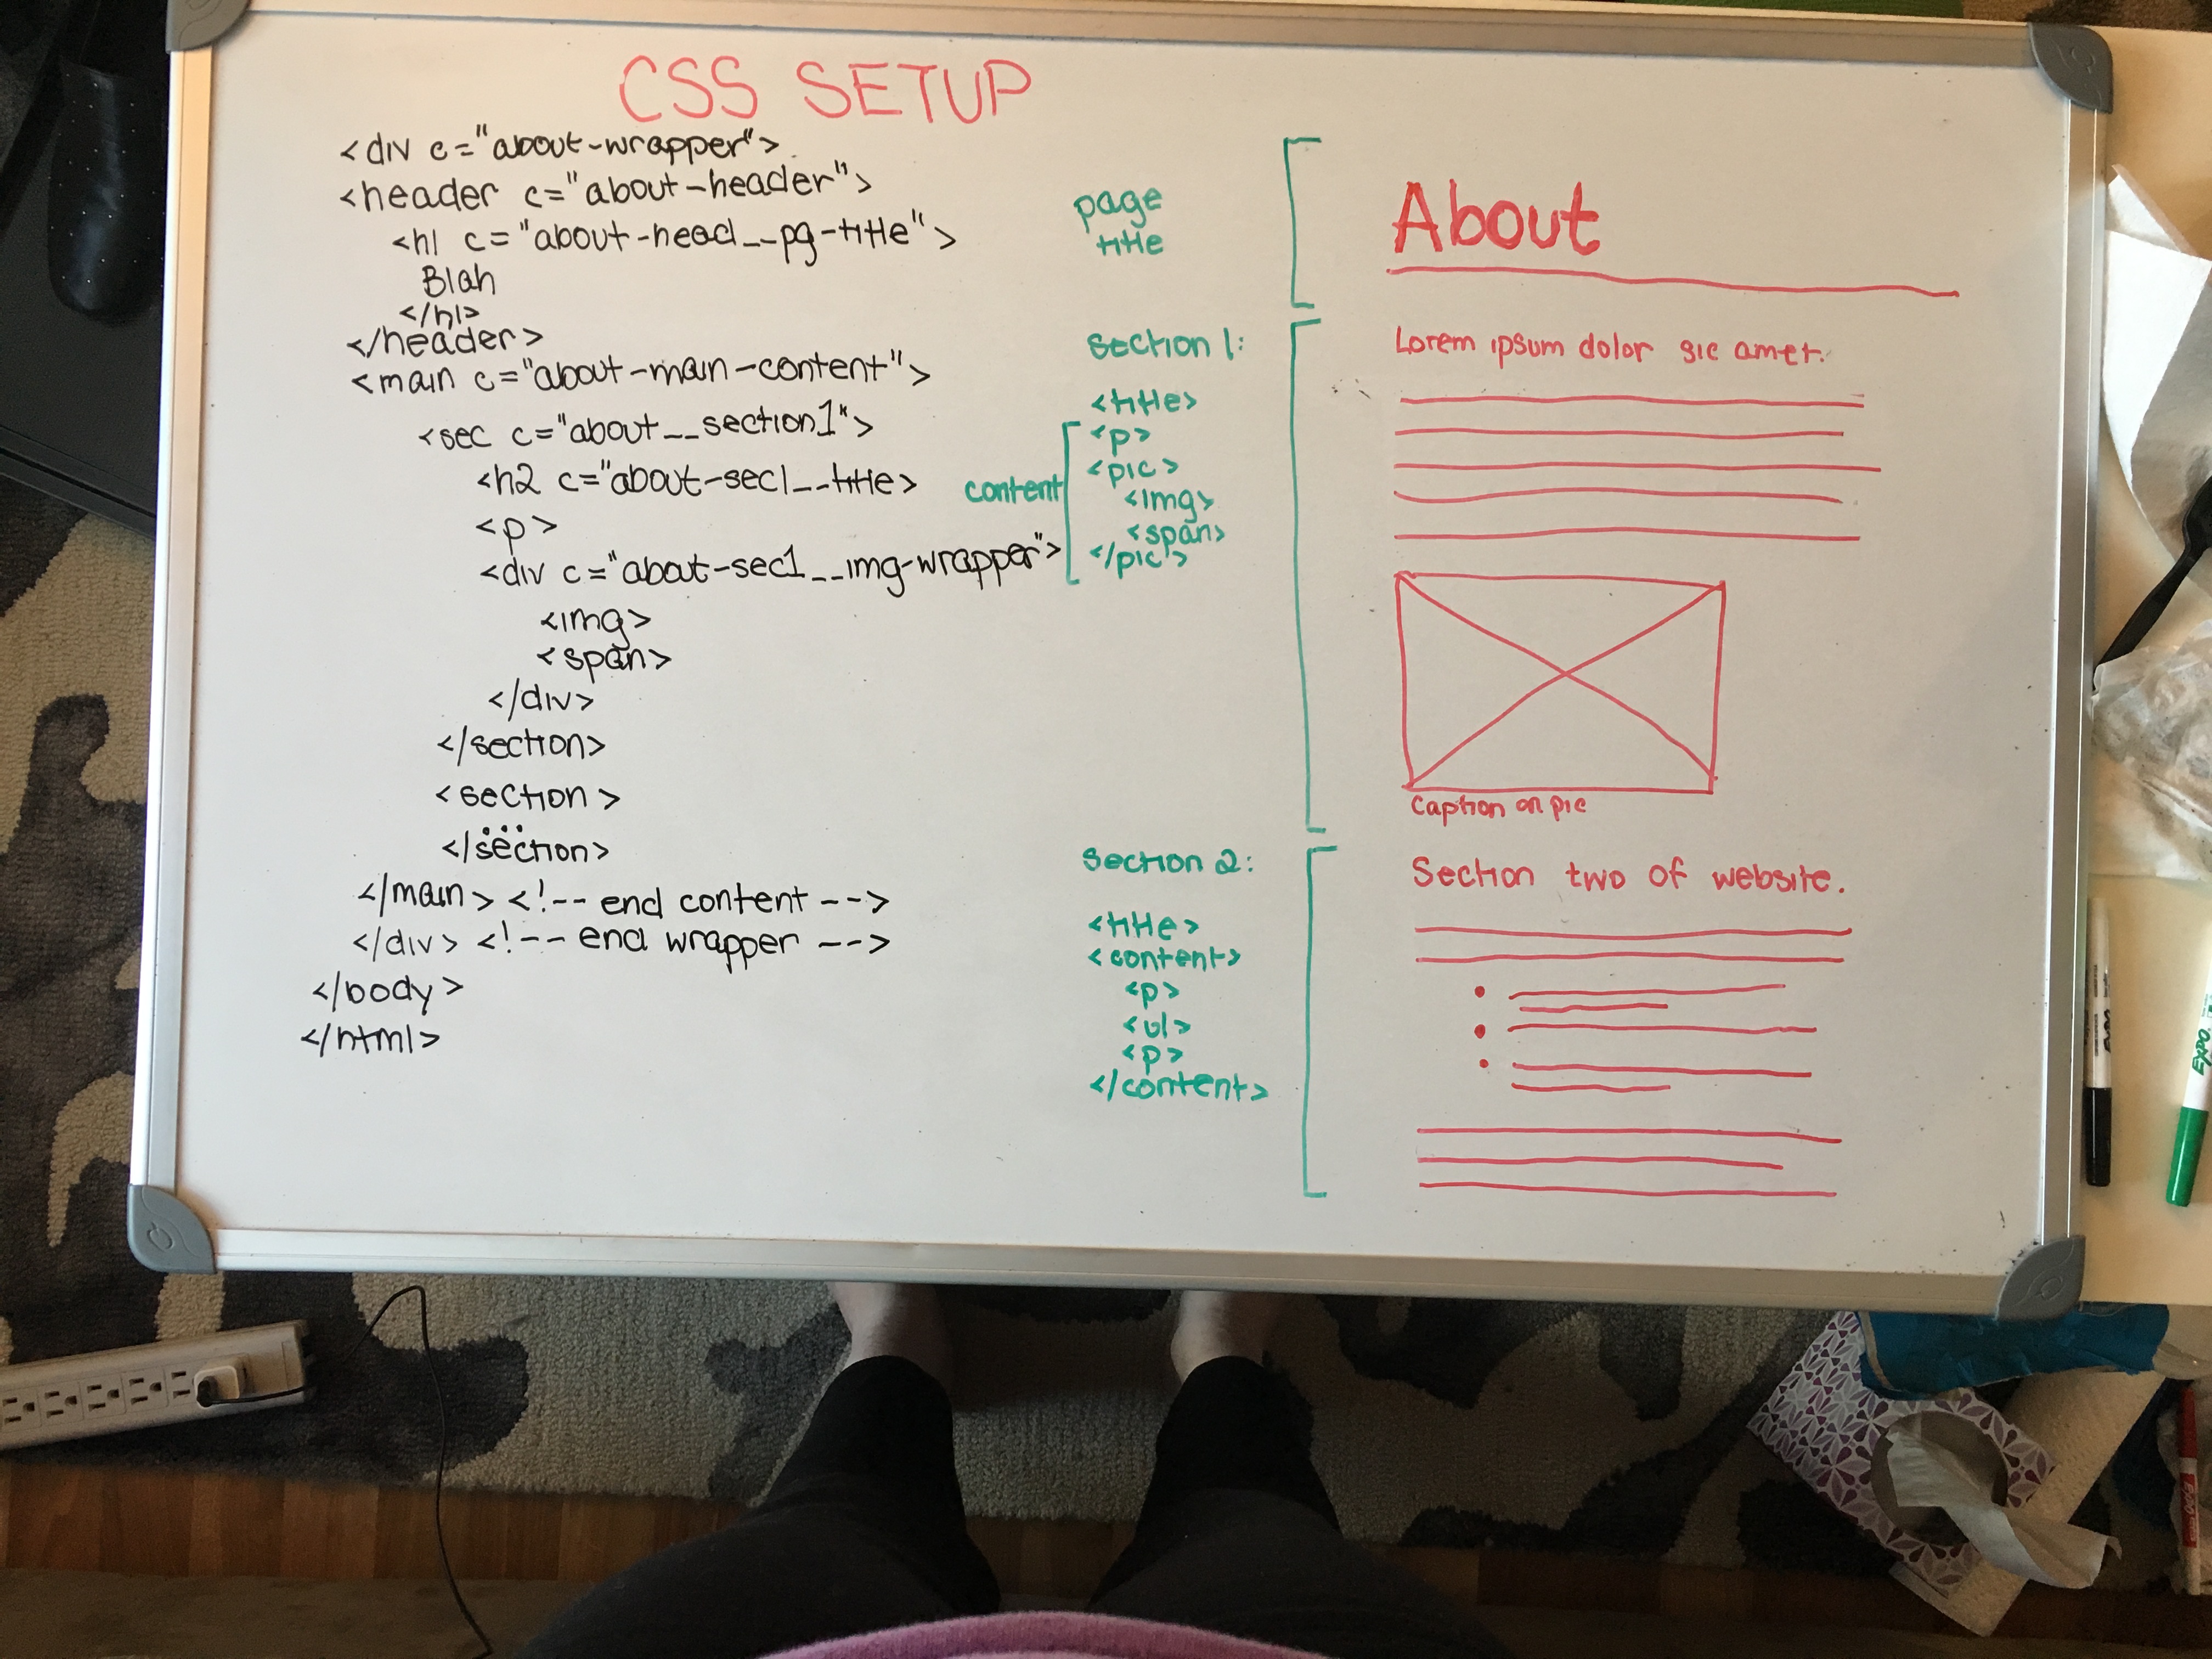 CSS SETUP
<div c="about-wrapper">
<header c="about-header">
<h1 c="about-head__pg-title">
Blah
</h1>
</header>
<main c="about-main-content">
<sec c="about__section1">
<h2 c="about-sec1__title>
<p>
<div c="about-sec1__img-wrapper">
<img>
<span>
</div>
</section>
<section>
</section>
</main> <!-- end content -->
</div> <!-- end wrapper -->
</body>
</html>
page
title
Section 1:
<title>
<p>
<pic>
<img>
<span>
</pic>
content
Section 2:
<title>
<content>
<p>
<ul>
<p>
</content>
About
Lorem ipsum dolor sic amet.
Caption on pic
Section two of website.
EXPO
EXPO
EXPO